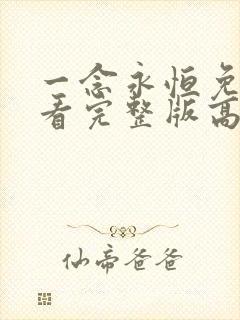 一念永恒免
看完整版高
仙帝爸爸